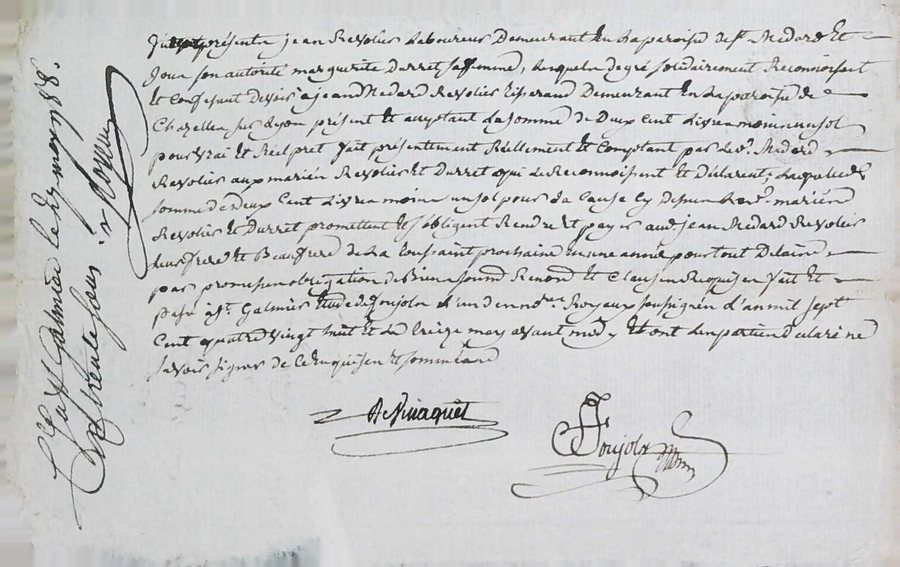 présents jean Revolier Laboureur Demeurant En La paroisse de St. Medard Et
sous son autorité marguerite Durret sa femme, Lesquels de gré solidairement Reconnoissent
Et Confessent Devoir a jean Medard Revolier Demeurant En La paroisse de
Chazelles sur Lyon présent Et acceptant La somme de Deux Cent Livres moins un sol
pour vrai Et Réel pret fait présentement Réellement Et Comptant par Led. Medard
Revolier aux mariés Revolier Et Durret qui Le Reconnoissent Et Déclarent, Laquelle de
somme de Deux Cent Livres moins un sol pour La Cause Cy Dessus Lesd. mariés
Revolier Et Durret promettent Et s'obligent Rendre Et payer aud. jean Medard Revolier
Leur frere Et Beaufrere de La toussaint prochaine En une année pour tout Délai
par promesse obligation de Biens soumis Renond. Et Clauses Requises fait Et
passé a St. Galmier Etude de Goujolx L'un des no.res Royaux soussignés L'an mil sept
Cent quatre vingt huit Et Le treize may avant midy Et ont Les parties Déclaré ne
savoir signer de Ce Enquises Et sommées
Goujolx
Ctlé a St Galmier le 27 may 1788.